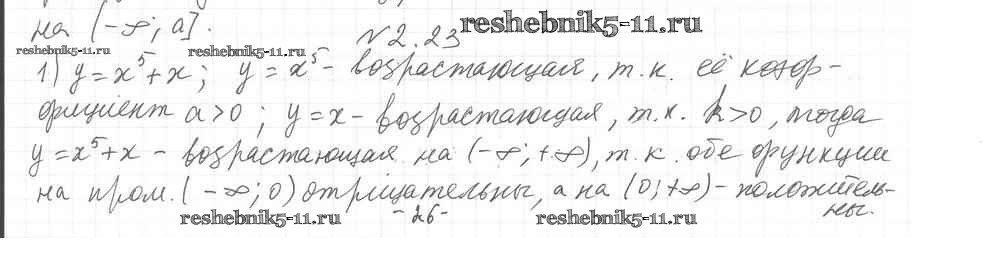 на (-∞; a].
№2.23
reshebnik5-11.ru
reshebnik5-11.ru
reshebnik5-11.ru
1) y=x⁵+x; y=x⁵- возрастающая, т.к. её коэф-
фициент a>0; y=x- возрастающая, т.к. k>0, тогда
y=x⁵+x - возрастающая на (-∞;+∞), т.к. обе функции
на пром. (-∞;0) отрицательны, а на (0;+∞)- положитель-
ны.
reshebnik5-11.ru
-26-
reshebnik5-11.ru